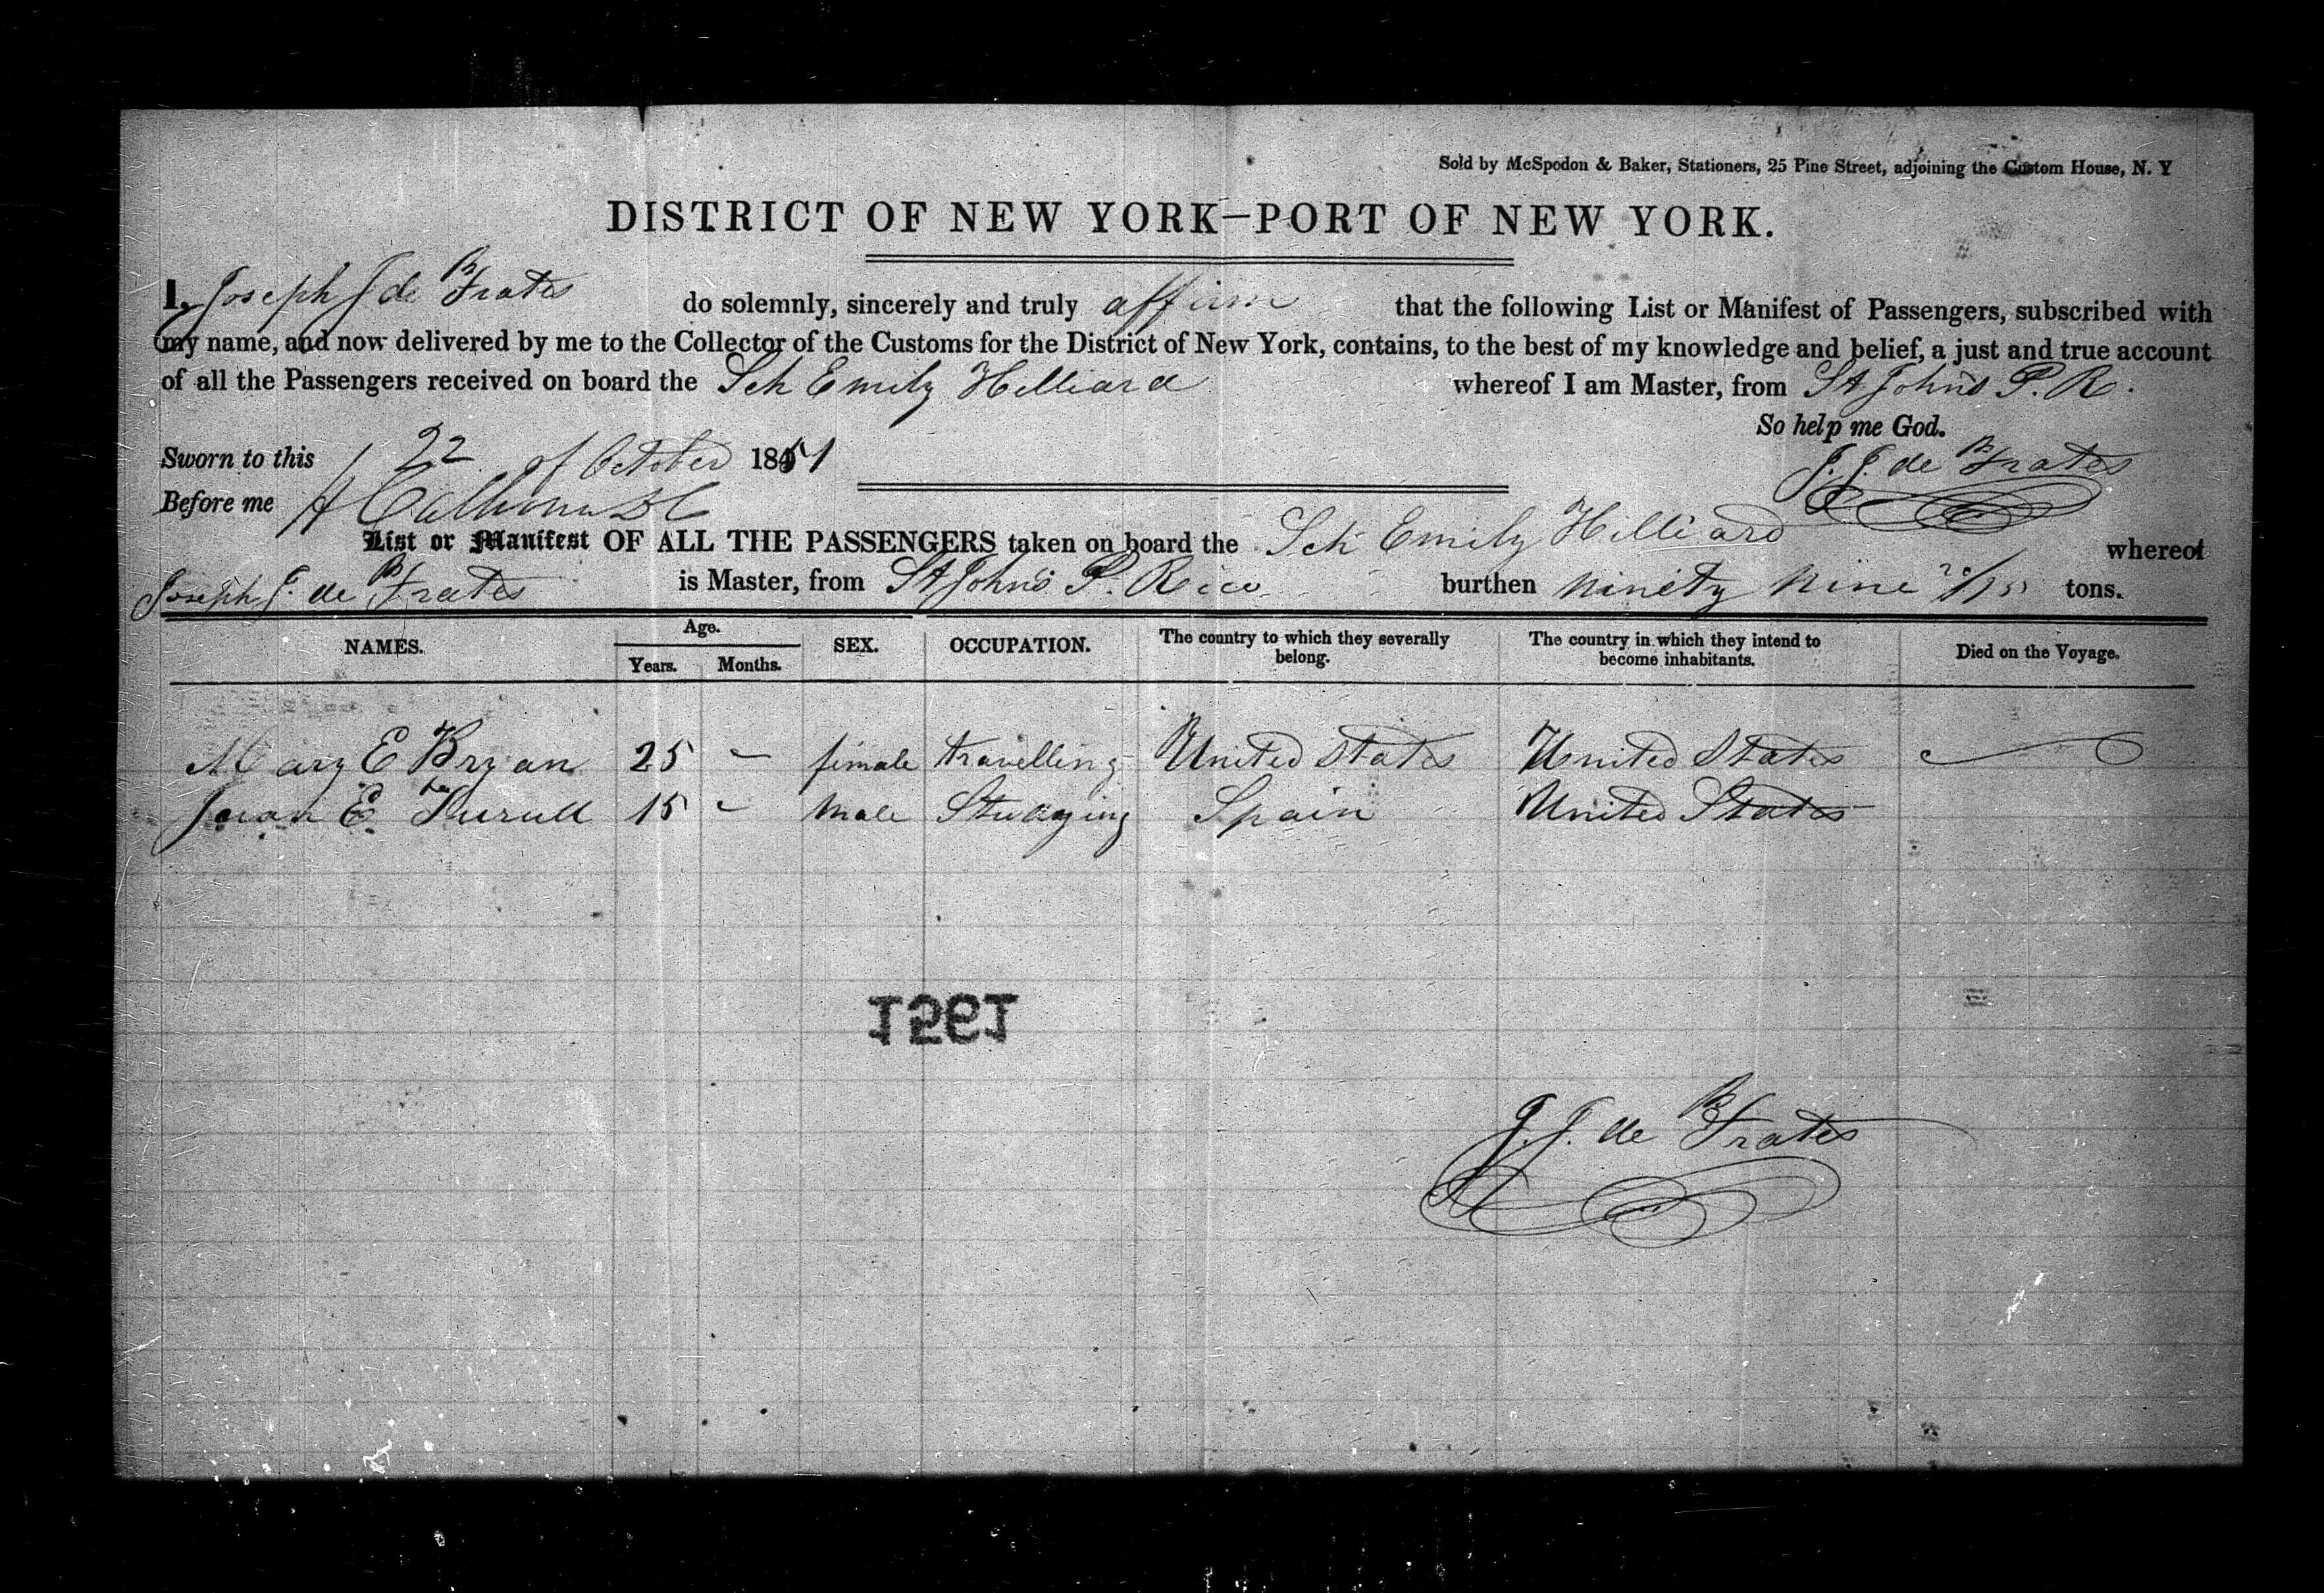 Sold by McSpedon & Baker, Stationers, 25 Pine Street, adjoining the Custom House, N. Y
DISTRICT OF NEW YORK—PORT OF NEW YORK.
I, Joseph J de Frates do solemnly, sincerely and truly affirm that the following List or Manifest of Passengers, subscribed with
my name, and now delivered by me to the Collector of the Customs for the District of New York, contains, to the best of my knowledge and belief, a just and true account
of all the Passengers received on board the Sch Emily Hilliard whereof I am Master, from St Johns P. R.
So help me God.
Sworn to this 22 of October 1851
J. J. de Frates
Before me A Calhoun DC
List or Manifest OF ALL THE PASSENGERS taken on board the Sch Emily Hilliard whereof
Joseph J. de Frates is Master, from St Johns P. Rico burthen ninety nine tons.
NAMES. Age. Years. Months. SEX. OCCUPATION. The country to which they severally belong. The country in which they intend to become inhabitants. Died on the Voyage.
Mary E Bryan 25 - female travelling United States United States
Juan E 15 - Male Studying Spain United States
1251
J. J. de Frates